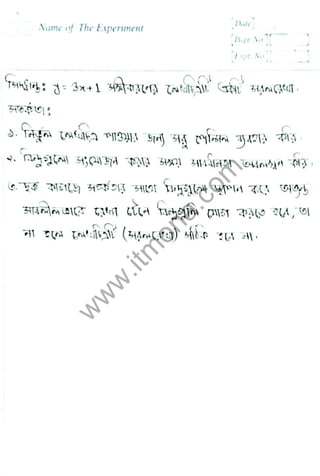 Name of The Experiment
Date
Page No
Expt. No
সিদ্ধান্ত: y = 3x+1 সমীকরণের লেখচিত্রটি একটি সরলরেখা
সতর্কতা:
১. নির্ভুল লেখচিত্র পাওয়ার জন্য সরু পেন্সিল ব্যবহার করি.
২. বিন্দুগুলো সংযোজন করার সময় সাবধানতা অবলম্বন করি.
৩. ছক কাগজে সতর্কতার সাথে বিন্দুগুলো স্থাপন করে
ভাবে রেখা টেনে বিন্দুগুলি যোগ করতে হবে, তা
না হলে লেখচিত্রটি (সরলরেখা) সঠিক হবে না.
www.itmona.com